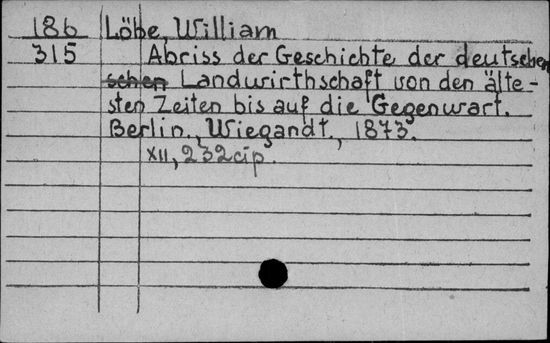 186 Löbe, William
315 Abriss der Geschichte der deutschen
schen Landwirthschaft von den älte-
sten Zeiten bis auf die Gegenwart.
Berlin., Wiegandt., 1873.
XII, 232